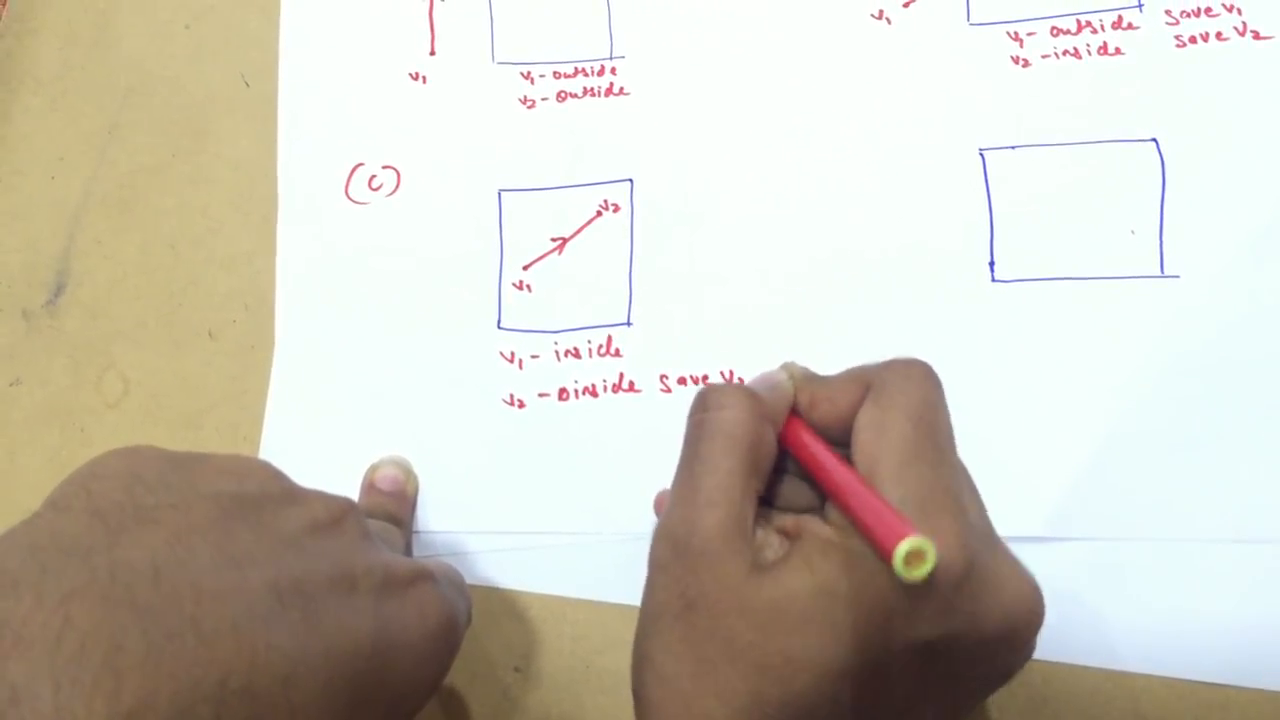 v₁
v₁ - outside
v₂ - outside
v₁
v₁ - outside save v₁
v₂ - inside save v₂
(c)
v₂
v₁
v₁ - inside
v₂ - inside save v₂